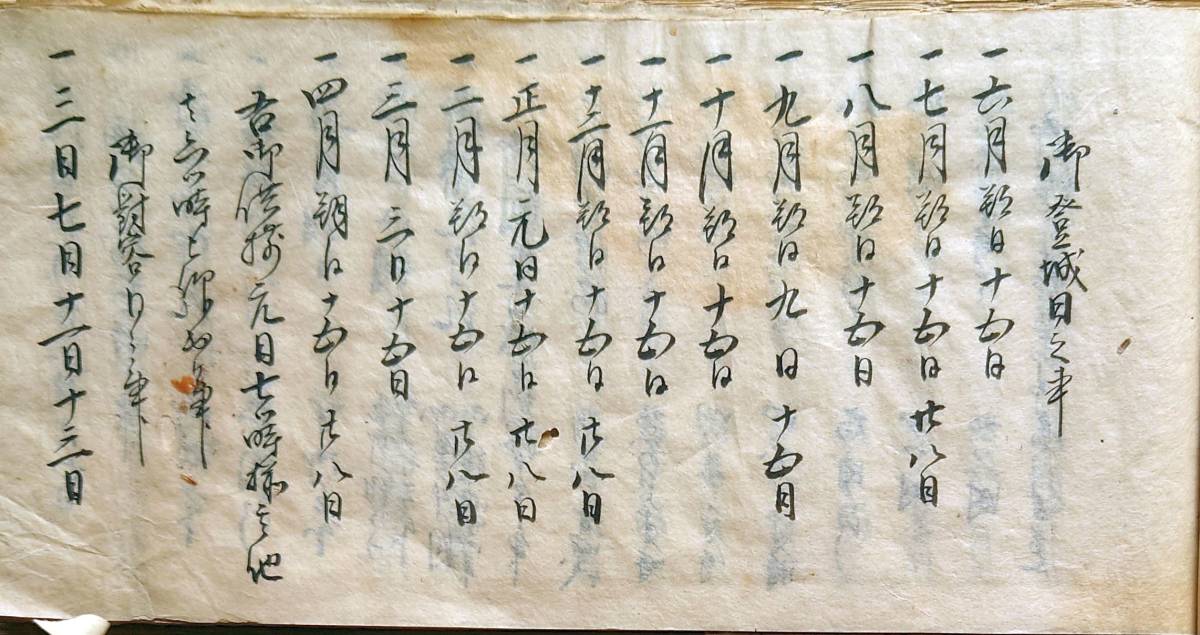 御登城日之事
一六月朔日十五日
一七月朔日十五日廿八日
一八月朔日十五日
一九月朔日九日十五日
一十月朔日十五日
一十一月朔日十五日
一十二月朔日十五日廿八日
一正月元日十五日廿八日
一二月朔日十五日廿八日
一三月三日十五日
一四月朔日十五日廿八日
右御供揃元日七時揃其他
者六時
御対客日之事
一三日七日十一日十三日